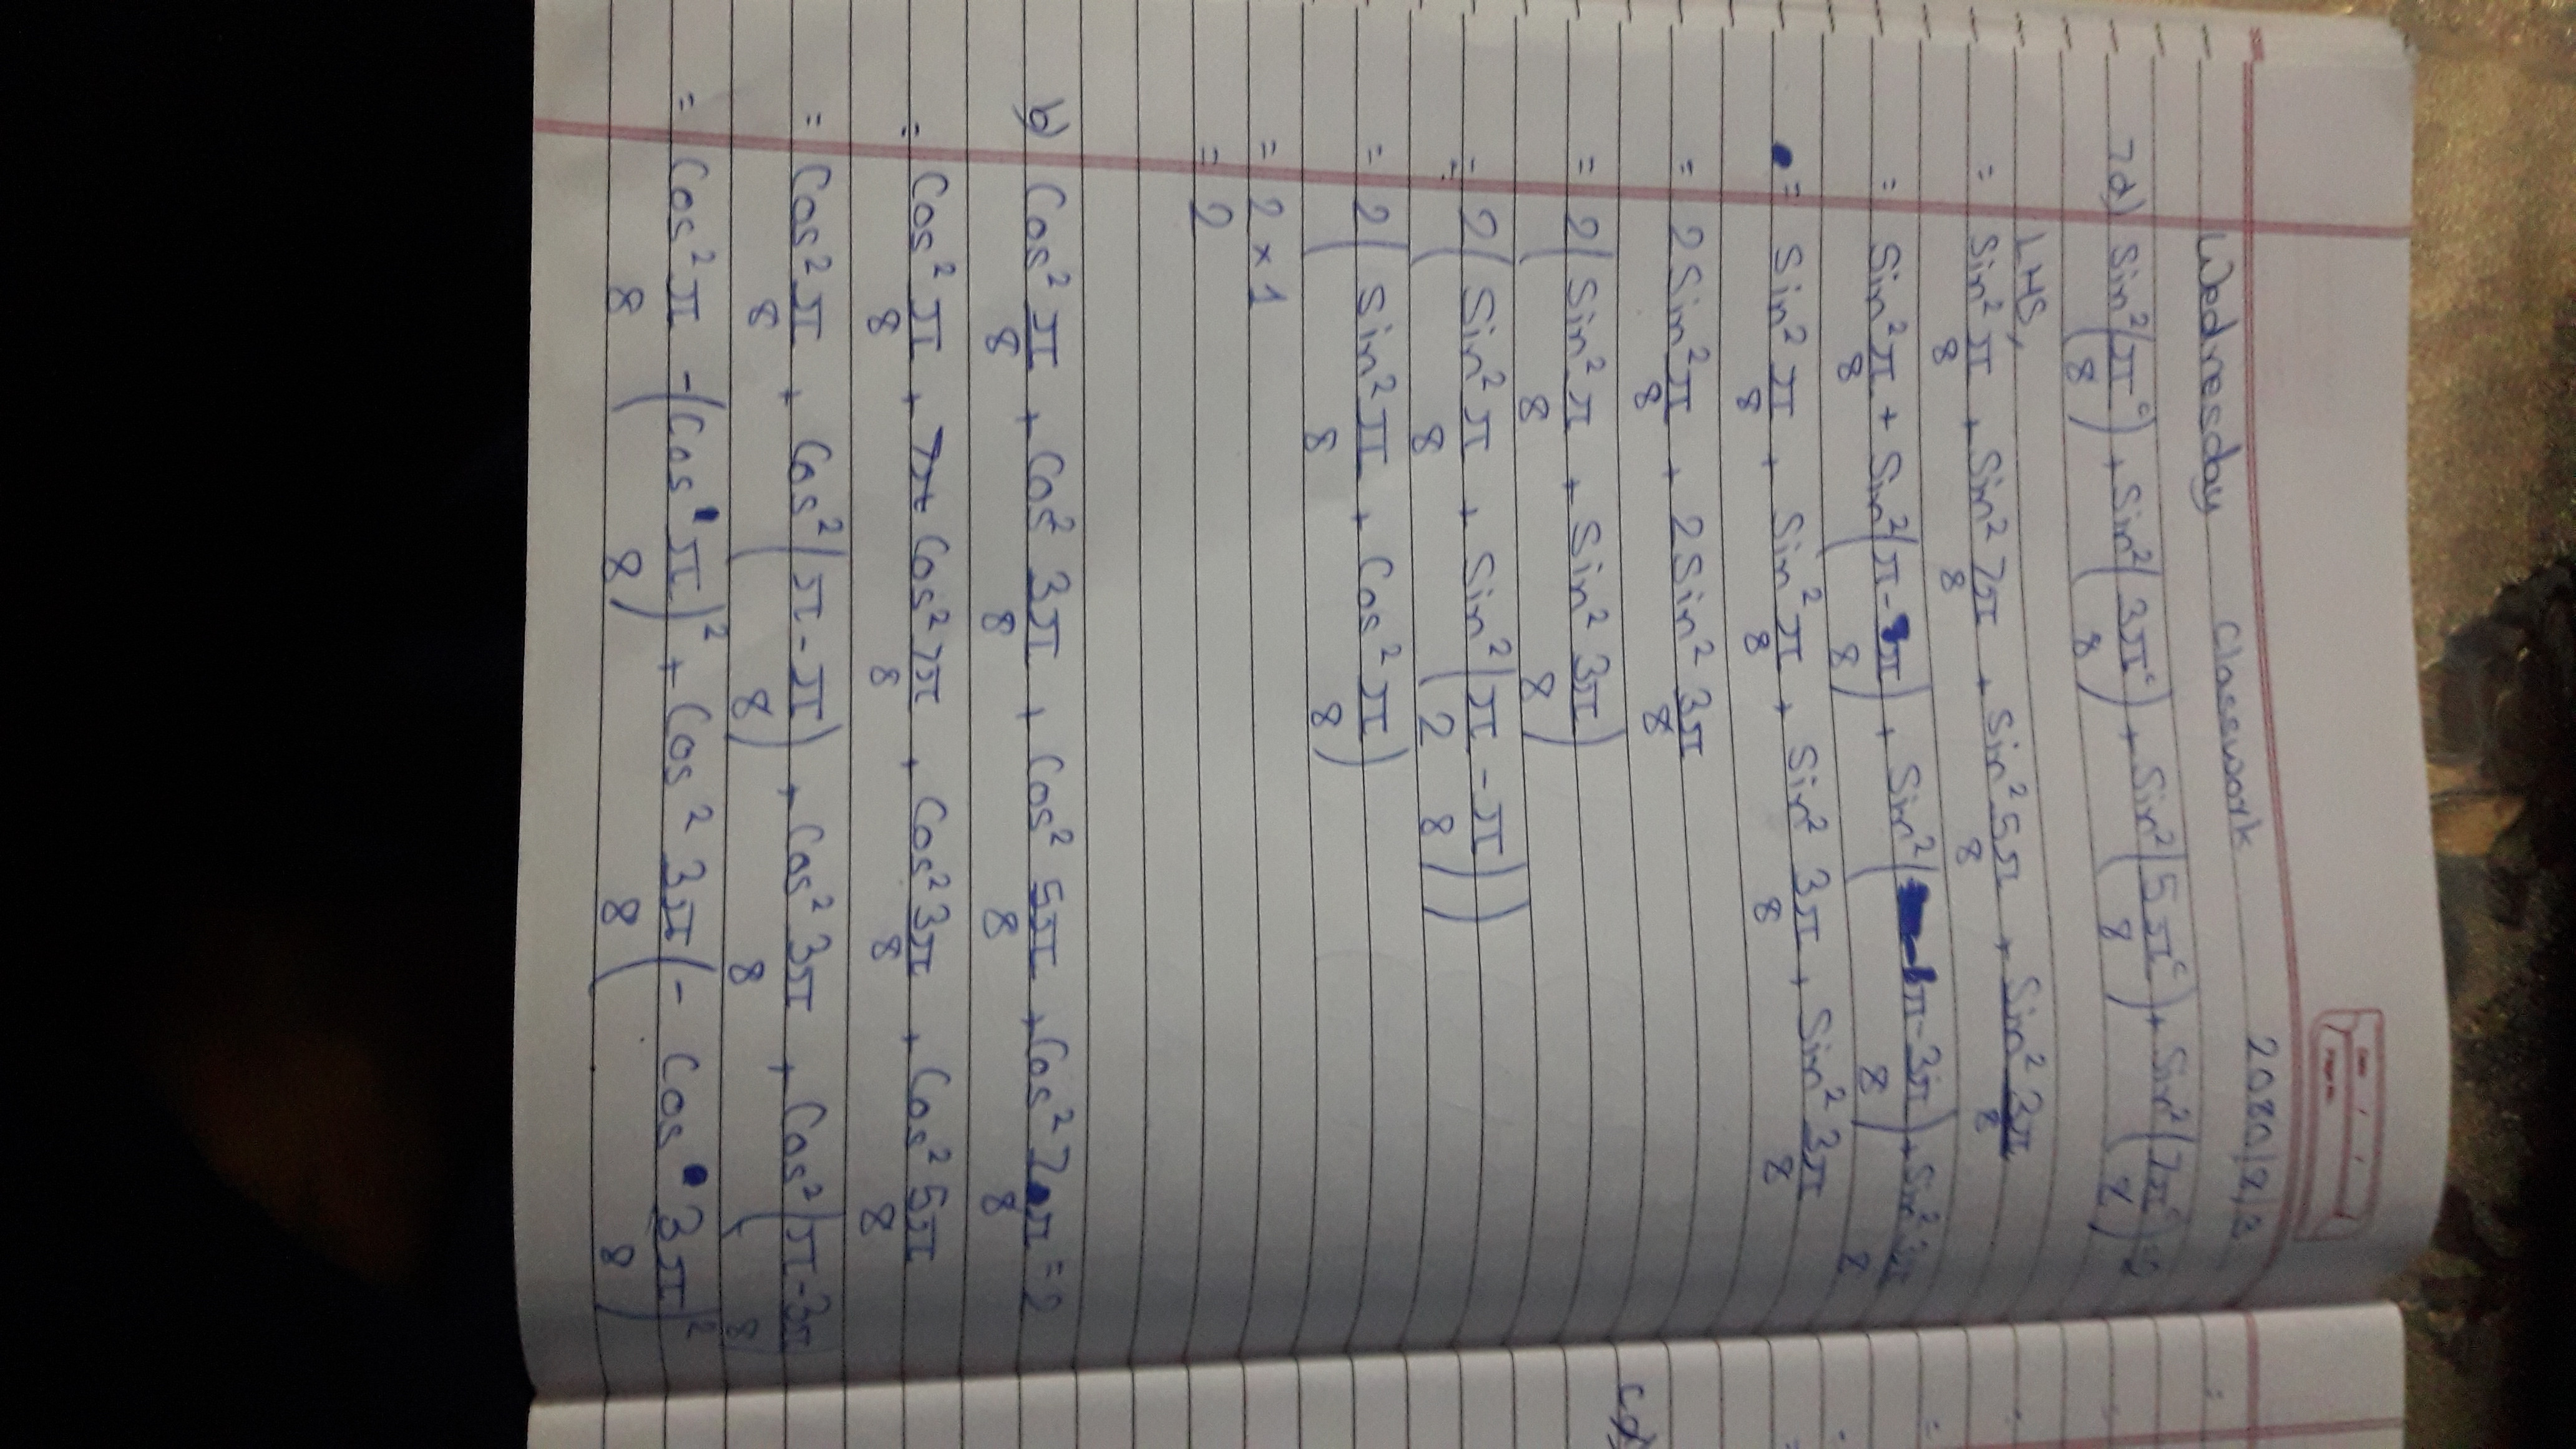 Wednesday Classwork 2080/2/3
7a) Sin²(π^c/8) + Sin²(3π^c/8) + Sin²(5π^c/8) + Sin²(7π^c/8) = 2
LHS,
= Sin² π/8 + Sin² 7π/8 + Sin² 5π/8 + Sin² 3π/8
= Sin² π/8 + Sin²(π - π/8) + Sin²(π - 3π/8) + Sin² 3π/8
= Sin² π/8 + Sin² π/8 + Sin² 3π/8 + Sin² 3π/8
= 2Sin² π/8 + 2Sin² 3π/8
= 2(Sin² π/8 + Sin² 3π/8)
= 2(Sin² π/8 + Sin²(π/2 - π/8))
= 2(Sin² π/8 + Cos² π/8)
= 2 × 1
= 2
b) Cos² π/8 + Cos² 3π/8 + Cos² 5π/8 + Cos² 7π/8 = 2
= Cos² π/8 + Cos² 7π/8 + Cos² 3π/8 + Cos² 5π/8
= Cos² π/8 + Cos²(π - π/8) + Cos² 3π/8 + Cos²(π - 3π/8)
= Cos² π/8 -(Cos π/8)² + Cos² 3π/8 (- Cos 3π/8)²